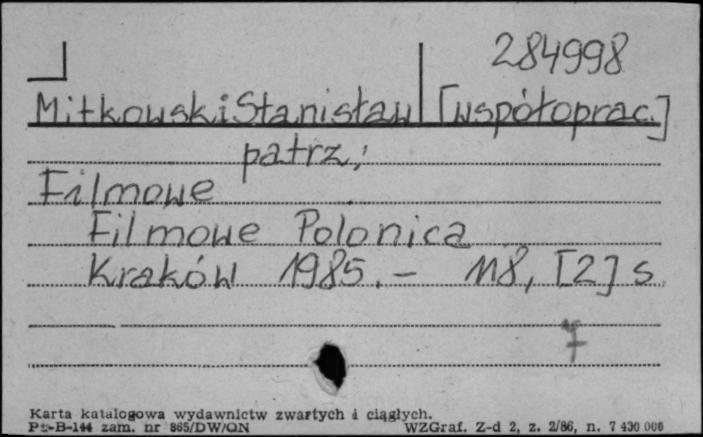 284998
Mitkowski Stanisław [współoprac.]
patrz;
Filmowe
Filmowe Polonica
Kraków 1985. – 118, [2] s
7
Karta katalogowa wydawnictw zwartych i ciągłych.
Pt-B-144 zam. nr 865/DW/ON WZGraf. Z-d 2, z. 2/86, n. 7 430 000